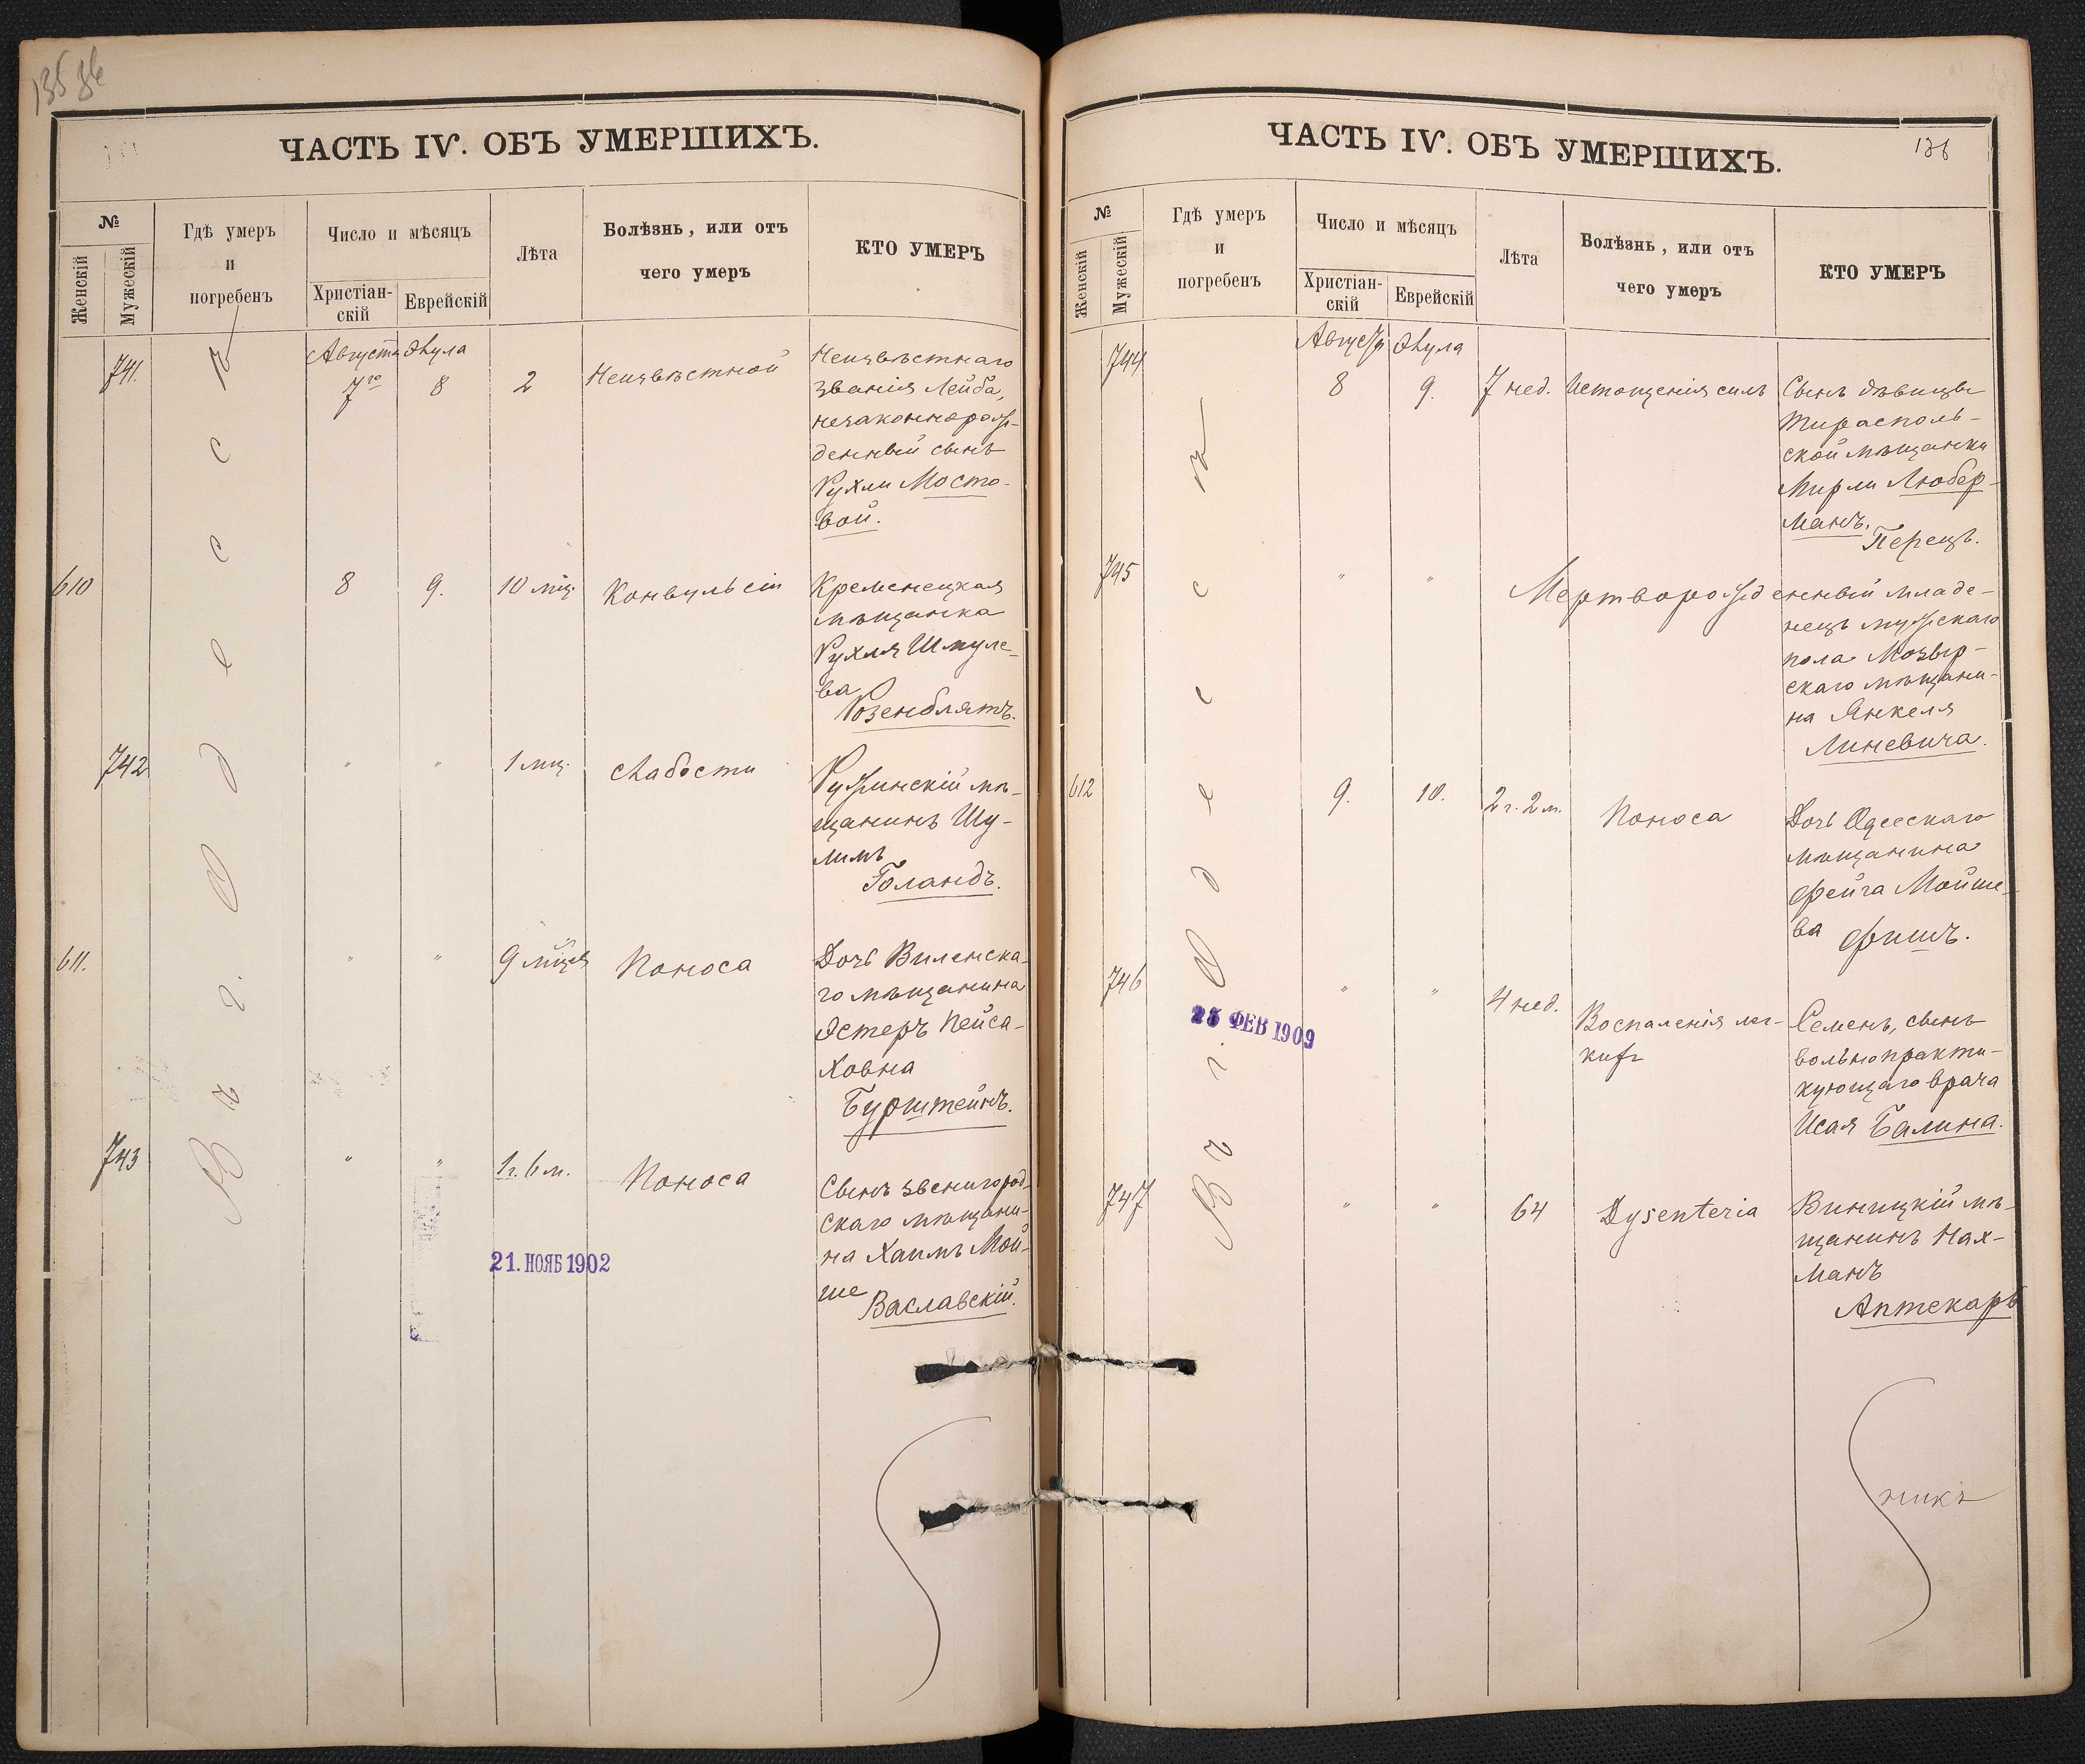 ЧАСТЬ IV. ОБЪ УМЕРШИХЪ.
№
Женскій
Мужескій
Гдѣ умеръ
и
погребенъ
Число и мѣсяцъ
Христіан-
скій
Еврейскій
Лѣта
Болѣзнь, или отъ
чего умеръ
КТО УМЕРЪ
Въ г. Одессѣ
741.
Августа
7го
Элула
8
2
Неизвѣстной
Неизвѣстнаго
званія Лейба,
незаконнорож-
денный сынъ
Рухли Мосто-
вой.
610
8
9.
10 мц.
Конвульсіи
Кременецкая
мѣщанка
Рухля Шмуле-
ва
Розенблятъ.
742
"
"
1 мц.
слабости
Ружинскій мѣ-
щанинъ Шу-
лимъ
Голандъ.
611.
"
"
9 мцев
Поноса
Дочь Виленска-
го мѣщанина
Эстеръ Пейса-
ховна
Бурштейнъ.
743
"
"
1 г. 6 м.
Поноса
Сынъ звенигород-
скаго мѣщани-
на Хаимъ Мой-
ше
Ваславскій.
21. НОЯБ 1902
ЧАСТЬ IV. ОБЪ УМЕРШИХЪ.
136
№
Женскій
Мужескій
Гдѣ умеръ
и
погребенъ
Число и мѣсяцъ
Христіан-
скій
Еврейскій
Лѣта
Болѣзнь, или отъ
чего умеръ
КТО УМЕРЪ
Въ г. Одессѣ
744
Августа
8
Элула
9.
7 нед.
Истощенія силъ
Сынъ дѣвицы
Тирасполь-
ской мѣщанки
Мирли Любер-
манъ.
Перецъ.
745
"
"
Мертворожденный младе-
нецъ мужскаго
пола Мозыр-
скаго мѣщани-
на Янкеля
Линевича.
612
9.
10.
2 г. 2 м.
Поноса
Дочь Одесскаго
мѣщанина
Фейга Мойше-
ва Фишъ.
746
"
"
4 нед.
Воспаленія лег-
кихъ
Семенъ, сынъ
вольнопракти-
кующаго врача
Исая Балина.
25 ФЕВ 1909
747
"
"
64
Dysenteria
Виницкій мѣ-
щанинъ Нах-
манъ
Аптекарь
никъ